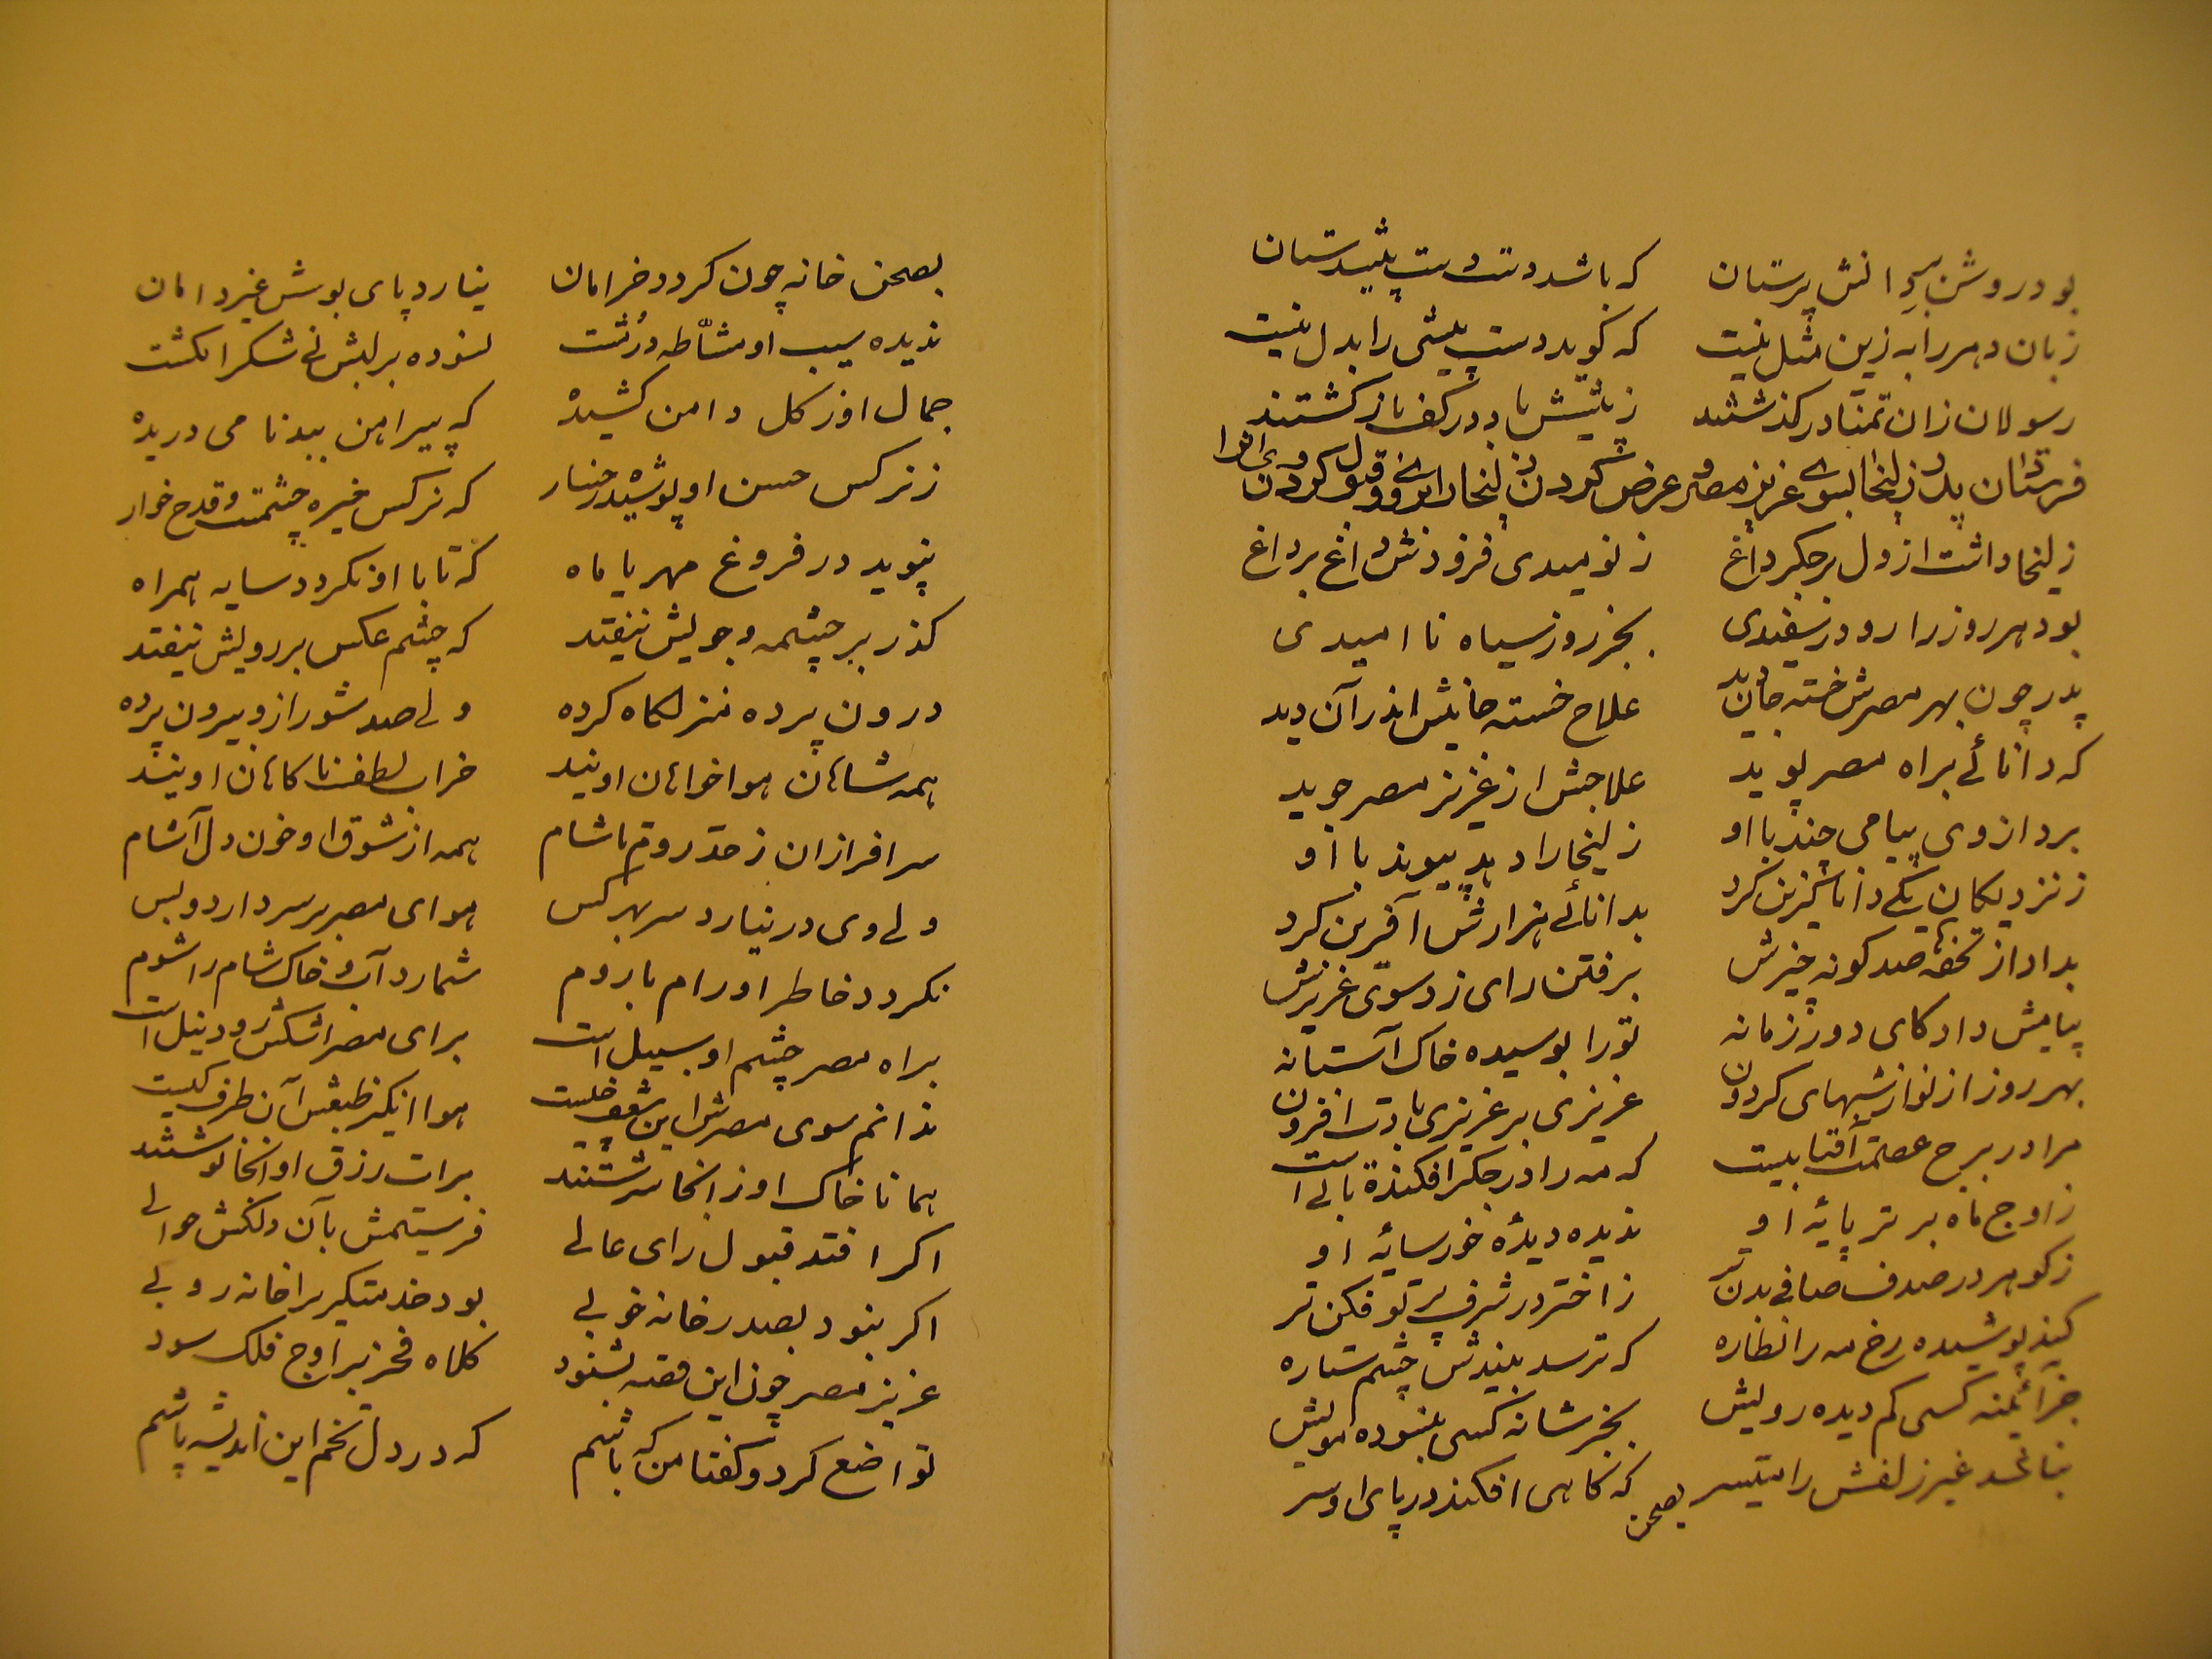 بود روشن بر دانش پرستان که باشد دست دست پیشدستان
زبان دهر را به زین مثل نیست که گوید دست پیشی را بدل نیست
رسولان زان تمنا در گذشتند ز پیشش باد در کف باز گشتند
فرستادن پدر زلیخا بسوی عزیز مصر و عرض کردن زلیخا را بر وی و قبول کردن وی او را
زلیخا داشت از دل بر جگر داغ ز نومیدی فزودش داغ بر داغ
بود هر روز را رو در سفیدی بجز روز سیاه ناامیدی
پدر چون بهر مصرش خسته جان دید علاج خسته جانیش اندر آن دید
که دانائے براه مصر پوید علاجش از عزیز مصر جوید
برد از وی پیامی چند با او زلیخا را دهد پیوند با او
ز نزدیکان یکے دانا گزین کرد بدانائے هزارش آفرین کرد
بداد از تحفه صد گونه چیزش برفتن رای زد سوی عزیزش
پیامش داد کای دور زمانه تو را بوسیده خاک آستانه
بهر روز از نوازشهای گردون عزیزی بر عزیزی بادت افزون
مرا در برج عصمت آفتابیست که مه را در جگر افکنده تابی است
ز اوج ماه برتر پایهٔ او ندیده دیدهٔ خور سایهٔ او
ز گوهر در صدف صافی بدن تر ز اختر در شرف پرتو فکن تر
کند پوشیده رخ مه را نظاره که ترسد بیندش چشم ستاره
جز آئینه کسی کم دیده رویش بجز شانه کسی نبسوده مویش
نباشد غیر زلفش را میسر که گاهی افکند در پای او سر
بصحن
بصحن خانه چون گردد خرامان نیارد پای بوسش غیر دامان
ندیده سیب او مشاطه در مشت نسوده بر لبش نی شکر انگشت
جمال او ز گل دامن کشیده که پیراهن ببدنامی دریده
ز نرگس حسن او پوشیده رخسار که نرگس خیره چشمست و قدح خوار
نپوید در فروغ مهر یا ماه که تا با او نگردد سایه همراه
گذر بر چشمه و جویش نیفتد که چشم عکس بر رویش نیفتد
درون پرده منزلگاه کرده ولے صد شور ازو بیرون پرده
همه شاهان هواخواهان اویند خراب لطف ناگاهان اویند
سرافرازان ز حد روم تا شام همه از شوق او خون دل آشام
ولے وی در نیارد سر بهر کس هوای مصر بر سر دارد و بس
نگردد خاطر او رام با روم شمارد آب و خاک شام را شوم
براه مصر چشم او سبیل است برای مصر اشکش رود نیل است
ندانم سوی مصرش این شعف چیست هواانگیز طبعش آن طرف کیست
همانا خاک او ز آنجا سرشتند برات رزق او آنجا نوشتند
اگر افتد قبول رای عالے فرستیمش بآن دلکش حوالے
اگر نبود بصدر خانه خوبے بود خدمتگیرا خانه روبے
عزیز مصر چون این قصه بشنود کلاه فخر بر اوج فلک سود
تواضع کرد و گفتا من که باشم که در دل تخم این اندیشه پاشم